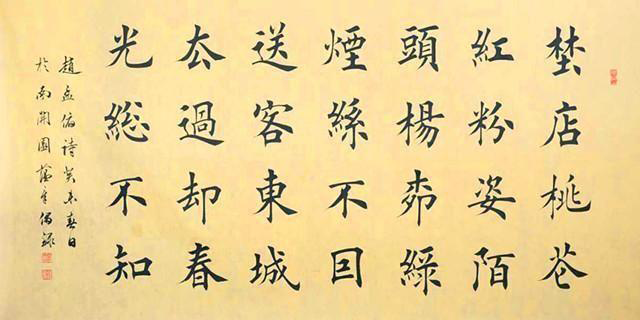 埜店桃花
紅粉姿陌
頭楊桺綠
煙絲不囙
送客東城
厺過却春
光総不知
趙孟俯詩癸未春日
於南開園